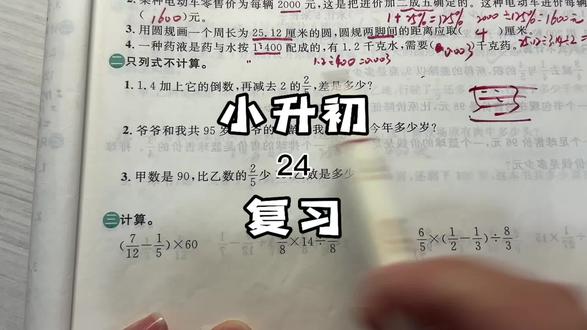 2. 某种电动车零售价为每辆 2000 元,这是把进价加二成五确定的。这种电动车进价每辆
(1600)元。 1+25%=125% 2000÷125%=1600元
3. 用圆规画一个周长为 25.12 厘米的圆,圆规两脚间的距离应取( 4 )厘米。
4. 一种药液是药与水按 1:400 配成的,有 1.2 千克水,需要(0.003)千克药。
1.2÷400=0.003
二 只列式不计算。
1. 1.4 加上它的倒数,再减去 2 的 2/,差是多少?
2. 爷爷和我共 95 岁 今年多少岁?
3. 甲数是 90,比乙数的 2/5 少 乙数是多少
三 计算。
(7/12 - 1/5)×60 /8 ×14÷ /8 6/5×(1/2 - 1/3)÷8/3
小升初
24
复习